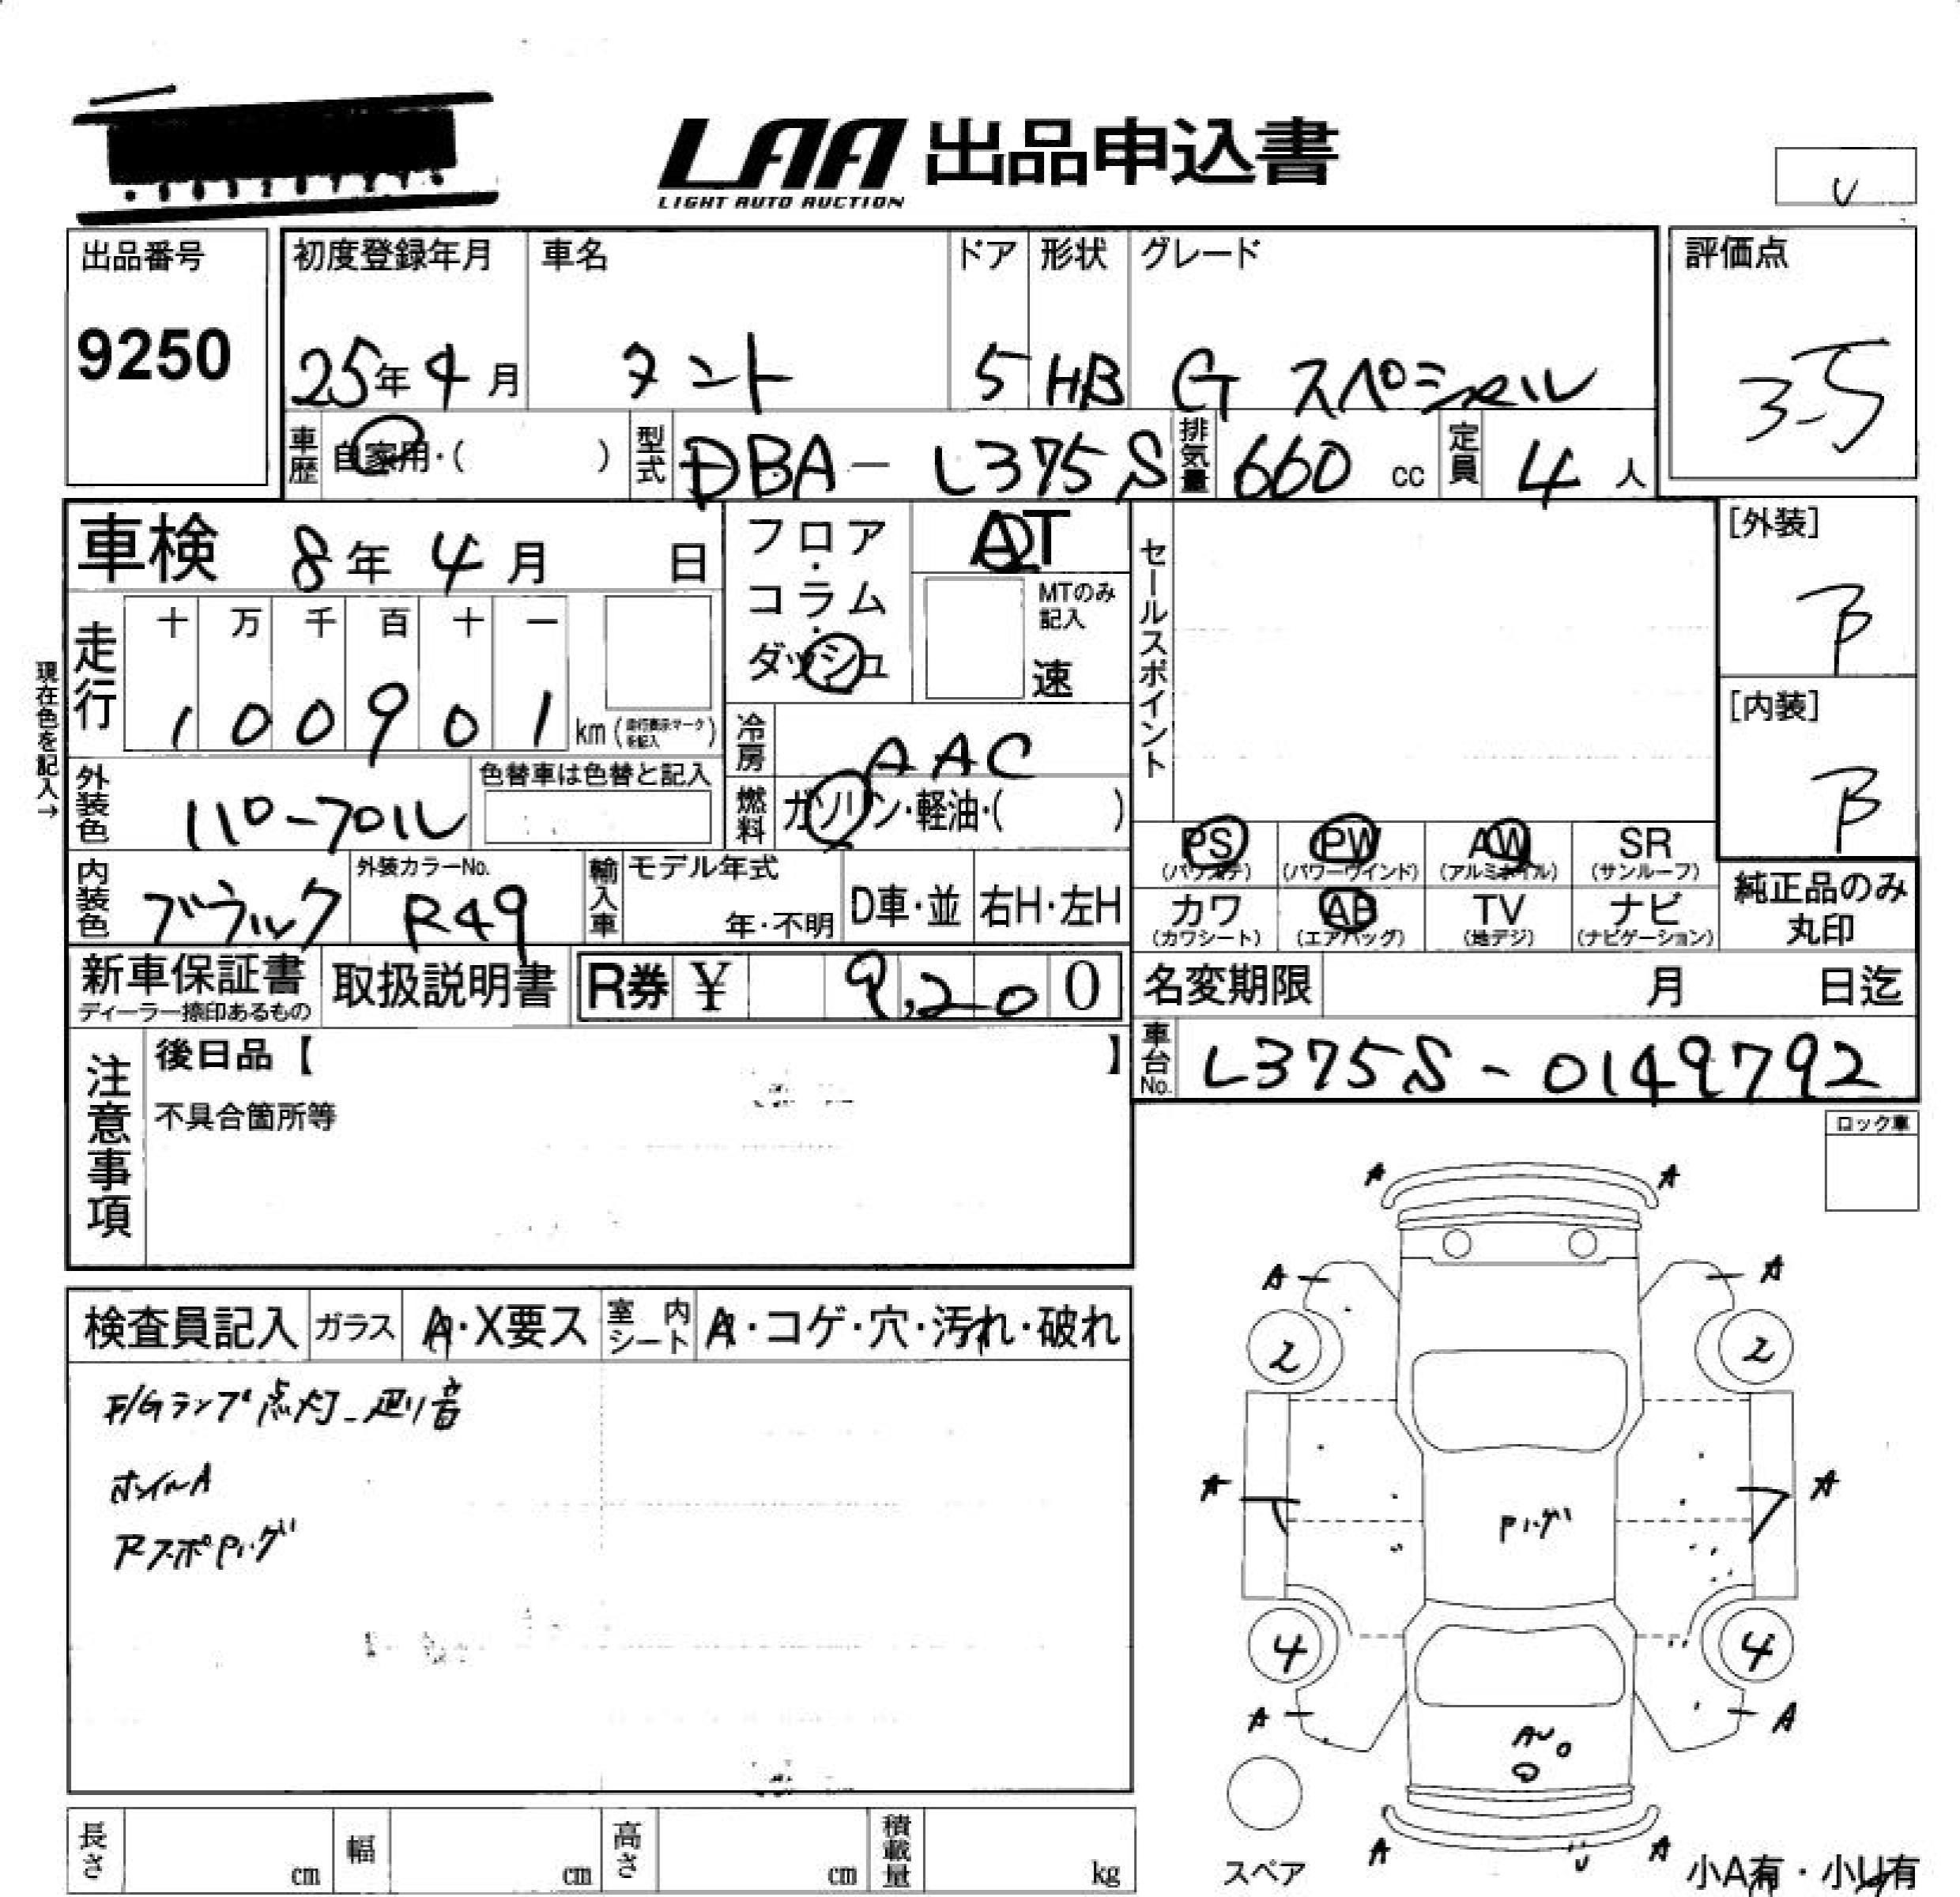 LAA 出品申込書
LIGHT AUTO AUCTION
出品番号
9250
初度登録年月 車名 ドア 形状 グレード
25年4月 タント 5 HB G スペシャル
評価点
3.5
車歴 自家用・( ) 型式 DBA-L375S 排気量 660 cc 定員 4 人
車検 8年4月 日
フロア・コラム・ダッシュ
AT
MTのみ記入
速
セールスポイント
[外装]
B
[内装]
B
現在色を記入→
走行 十 万 千 百 十 一
1 0 0 9 0 1 km (走行表示マークを記入)
冷房 AAC
外装色 パープル 色替車は色替と記入
燃料 ガソリン・軽油・( )
PS (パワステ) PW (パワーウインド) AW (アルミホイル) SR (サンルーフ)
カワ (カワシート) AB (エアバッグ) TV (地デジ) ナビ (ナビゲーション)
純正品のみ丸印
内装色 ブラック 外装カラーNo. R49 輸入車 モデル年式 年・不明 D車・並 右H・左H
新車保証書 ディーラー捺印あるもの 取扱説明書 R券 ¥ 9,200
名変期限 月 日迄
車台No. L375S-0149792
注意事項
後日品【 】
不具合箇所等
ロック車
検査員記入 ガラス A・X要ス 室内シート A・コゲ・穴・汚れ・破れ
F/Gランプ点灯
ホイルA
RスポPハゲ
A A
A A
2 2
A A
Pハゲ
4 4
A A
A A
スペア
小A有・小U有
長さ cm 幅 cm 高さ cm 積載量 kg